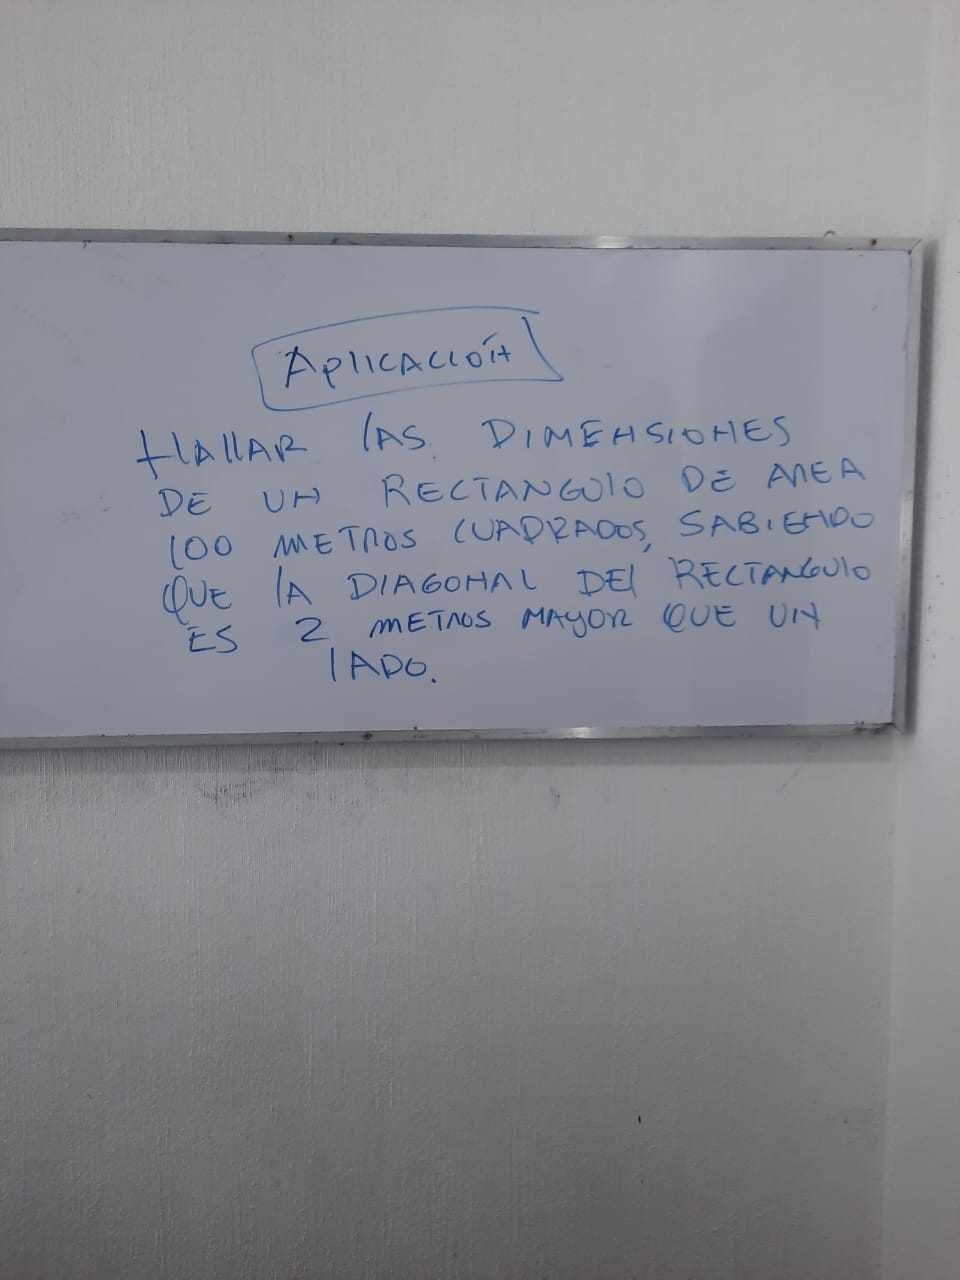 APlICACIÓN
HAllAR lAS DIMENSIONES
DE UN RECTANGUlO DE AREA
100 METROS CUADRADOS, SABIENDO
QUE lA DIAGONAL DEl RECTANGUlO
ES 2 METROS MAYOR QUE UN
lADO.